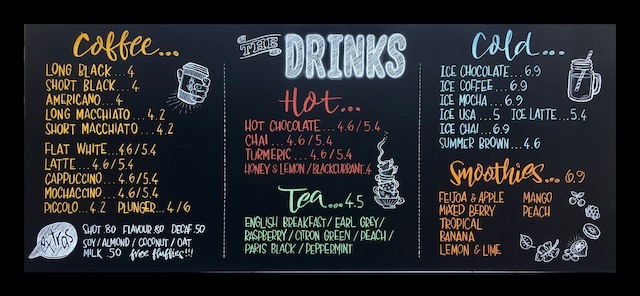 Coffee...
LONG BLACK...4
SHORT BLACK...4
AMERICANO...4
LONG MACCHIATO...4.2
SHORT MACCHIATO...4.2
FLAT WHITE...4.6/5.4
LATTE...4.6/5.4
CAPPUCCINO...4.6/5.4
MOCHACCINO...4.6/5.4
PICCOLO...4.2 PLUNGER...4/6
extras
SHOT .80 FLAVOUR .80 DECAF .50
SOY/ALMOND/COCONUT/OAT
MILK .50 free fluffies!!!
THE DRINKS
Hot...
HOT CHOCOLATE...4.6/5.4
CHAI...4.6/5.4
TURMERIC...4.6/5.4
HONEY & LEMON/BLACKCURRANT.4
Tea...4.5
ENGLISH BREAKFAST/EARL GREY/
RASPBERRY/CITRON GREEN/PEACH/
PARIS BLACK/PEPPERMINT
Cold...
ICE CHOCOLATE...6.9
ICE COFFEE...6.9
ICE MOCHA...6.9
ICE USA...5 ICE LATTE...5.4
ICE CHAI...6.9
SUMMER BROWN...4.6
Smoothies...6.9
FEIJOA & APPLE MANGO
MIXED BERRY PEACH
TROPICAL
BANANA
LEMON & LIME